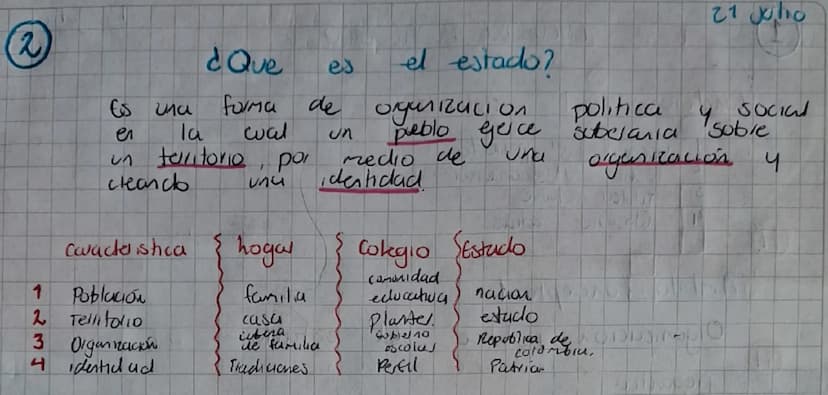 21 Julio
2
¿Que es el estado?
Es una forma de organizacion politica y social
en la cual un pueblo ejerce soberania sobre
un territorio, por medio de una organización y
creando una identidad.
caracteristica hogar Colegio Estado
1 Población familia comunidad educativa nacion
2 Territorio casa Plantel. estado
3 Organización de familia Gobierno escolar Republica de colombia.
4 identidad Tradiciones Perfil Patria